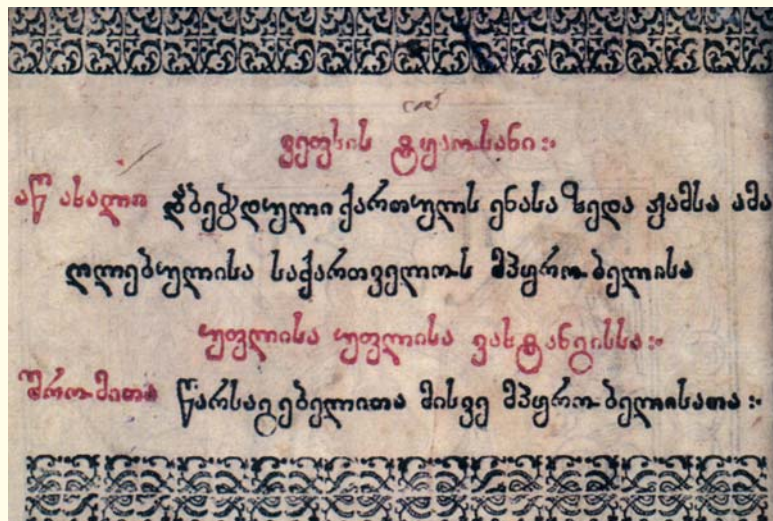 ვეფხის ტყაოსანი:
აწ ახალი დაბეჭდული ქართულს ენასა ზედა ჟამსა ამა
ღლებულისა საქართველოს მპყრობელისა
უფლისა უფლისა ვახტანგისსა:
შრომითა წარსაგებელითა მისვე მპყრობელისათა: